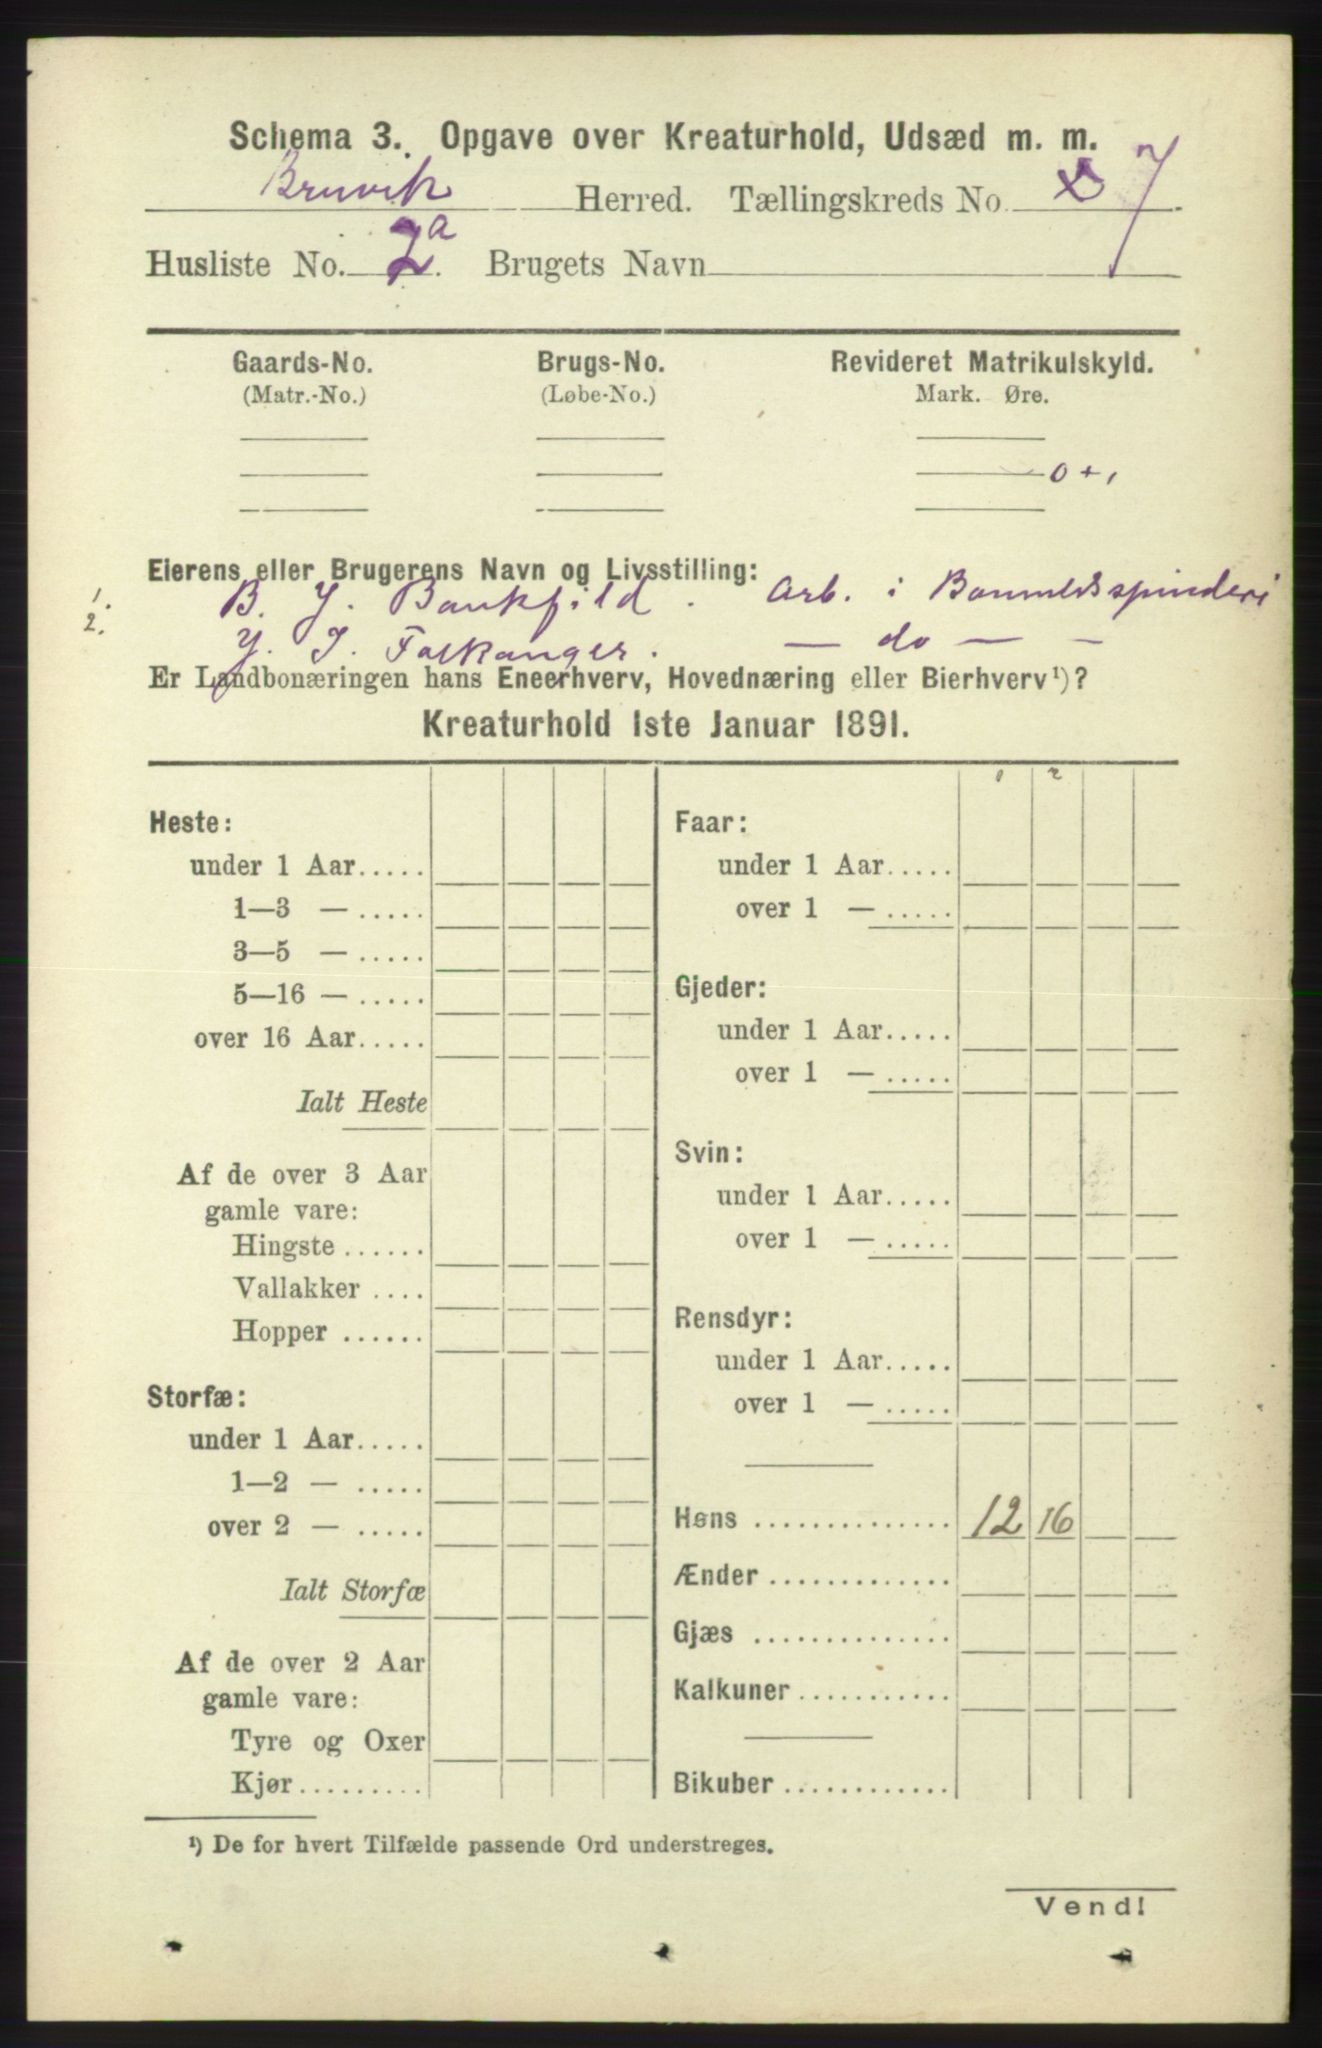 Schema 3. Opgave over Kreaturhold, Udsæd m. m.
Bruvik Herred. Tællingskreds No. 7
Husliste No. 2a. Brugets Navn
Gaards-No. Brugs-No. Revideret Matrikulskyld.
(Matr.-No.) (Løbe-No.) Mark. Øre.
0 + 1
Eierens eller Brugerens Navn og Livsstilling:
1. B. J. Bankfild. Arb. i Bommuldsspinderi
2. J. I. Falkanger. — do —
Er Landbonæringen hans Eneerhverv, Hovednæring eller Bierhverv¹)?
Kreaturhold 1ste Januar 1891.
1 2
Heste:
under 1 Aar.....
1—3 — .....
3—5 — .....
5—16 — .....
over 16 Aar.....
Ialt Heste
Af de over 3 Aar
gamle vare:
Hingste ......
Vallakker ....
Hopper ......
Storfæ:
under 1 Aar.....
1—2 — .....
over 2 — .....
Ialt Storfæ
Af de over 2 Aar
gamle vare:
Tyre og Oxer
Kjør.........
Faar:
under 1 Aar.....
over 1 — .....
Gjeder:
under 1 Aar.....
over 1 — .....
Svin:
under 1 Aar.....
over 1 — .....
Rensdyr:
under 1 Aar.....
over 1 — .....
Høns .............. 12 16
Ænder .............
Gjæs ..............
Kalkuner ...........
Bikuber ............
¹) De for hvert Tilfælde passende Ord understreges.
Vend!